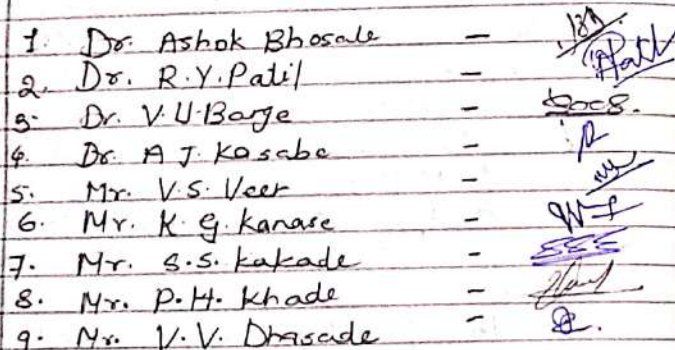 1. Dr. Ashok Bhosale -
2. Dr. R.Y. Patil - Patil
3. Dr. V.U. Barge -
4. Dr. A J. Kasabe -
5. Mr. V.S. Veer -
6. Mr. K. G. Kanase -
7. Mr. S.S. Kakade -
8. Mr. P.H. Khade -
9. Mr. V.V. Dhasade -